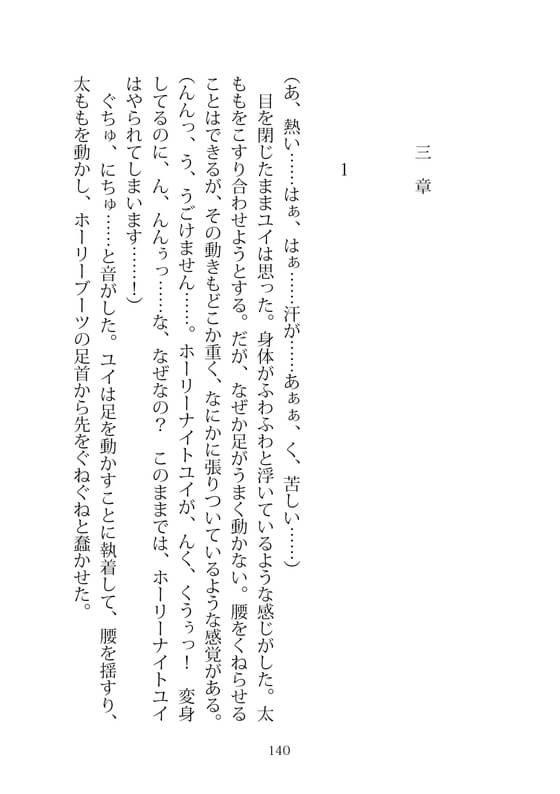 三章
1
（あ、熱い……はぁ、はぁ……汗が……あぁぁ、く、苦しい……）
　目を閉じたままユイは思った。身体がふわふわと浮いているような感じがした。太
ももをこすり合わせようとする。だが、なぜか足がうまく動かない。腰をくねらせる
ことはできるが、その動きもどこか重く、なにかに張りついているような感覚がある。
（んんっ、う、うごけません……。ホーリーナイトユイが、んく、くうぅっ！　変身
してるのに、ん、んんぅっ……な、なぜなの？　このままでは、ホーリーナイトユイ
はやられてしまいます……！）
　ぐちゅ、にちゅ……と音がした。ユイは足を動かすことに執着して、腰を揺すり、
太ももを動かし、ホーリーブーツの足首から先をぐねぐねと蠢かせた。
140